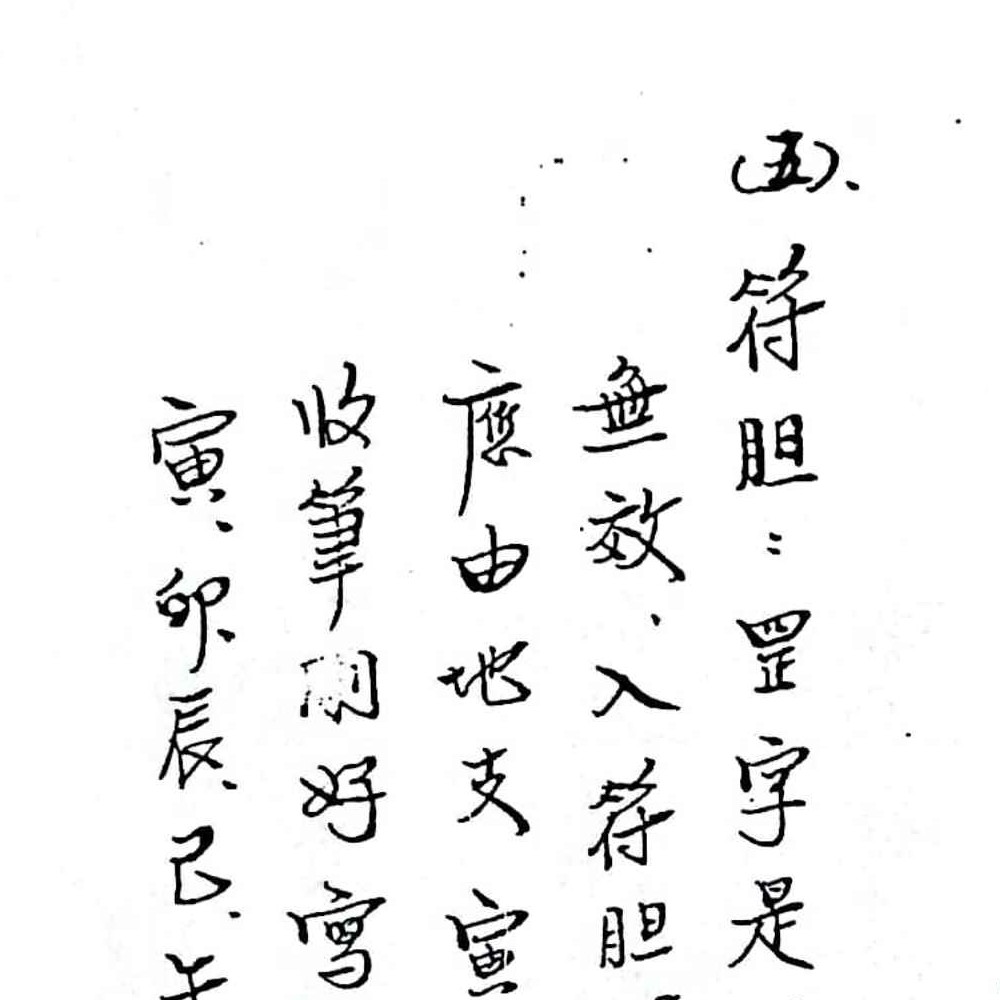 (五)、符胆：罡字是
無效、入符胆
應由地支寅
收筆剛好寫
寅、卯、辰、巳、午